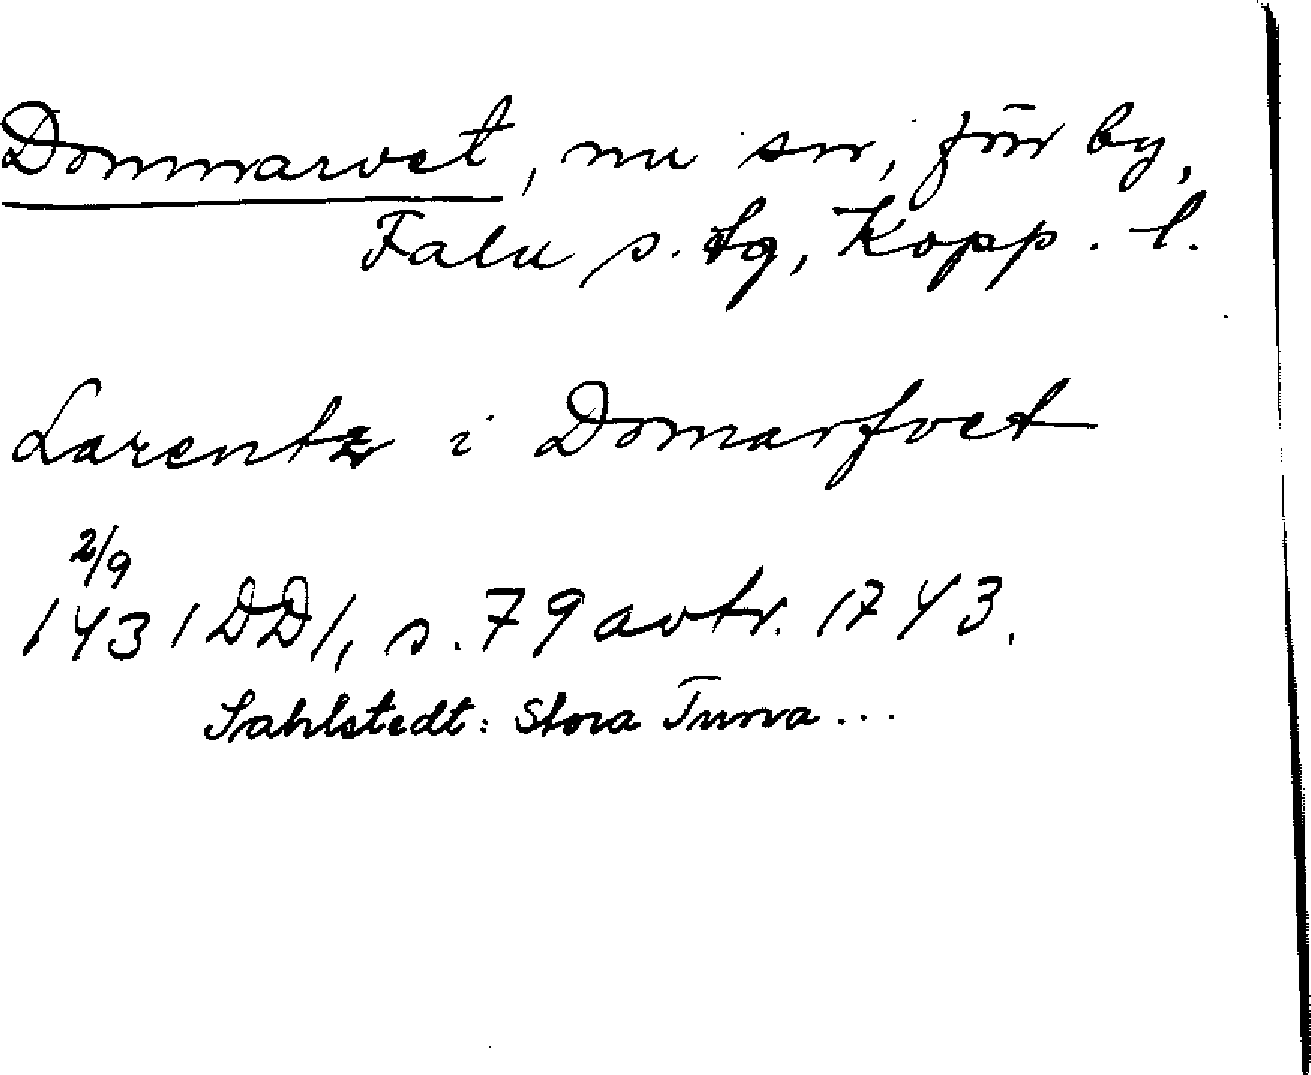 Dommarvet, nu sn, förr by,
Falu s. tg, Kopp. l.
Larentz i Domarfvet
2/9
1431 DD 1, s. 79 avtr. 1743.
Sahlstedt: Stora Tuna...